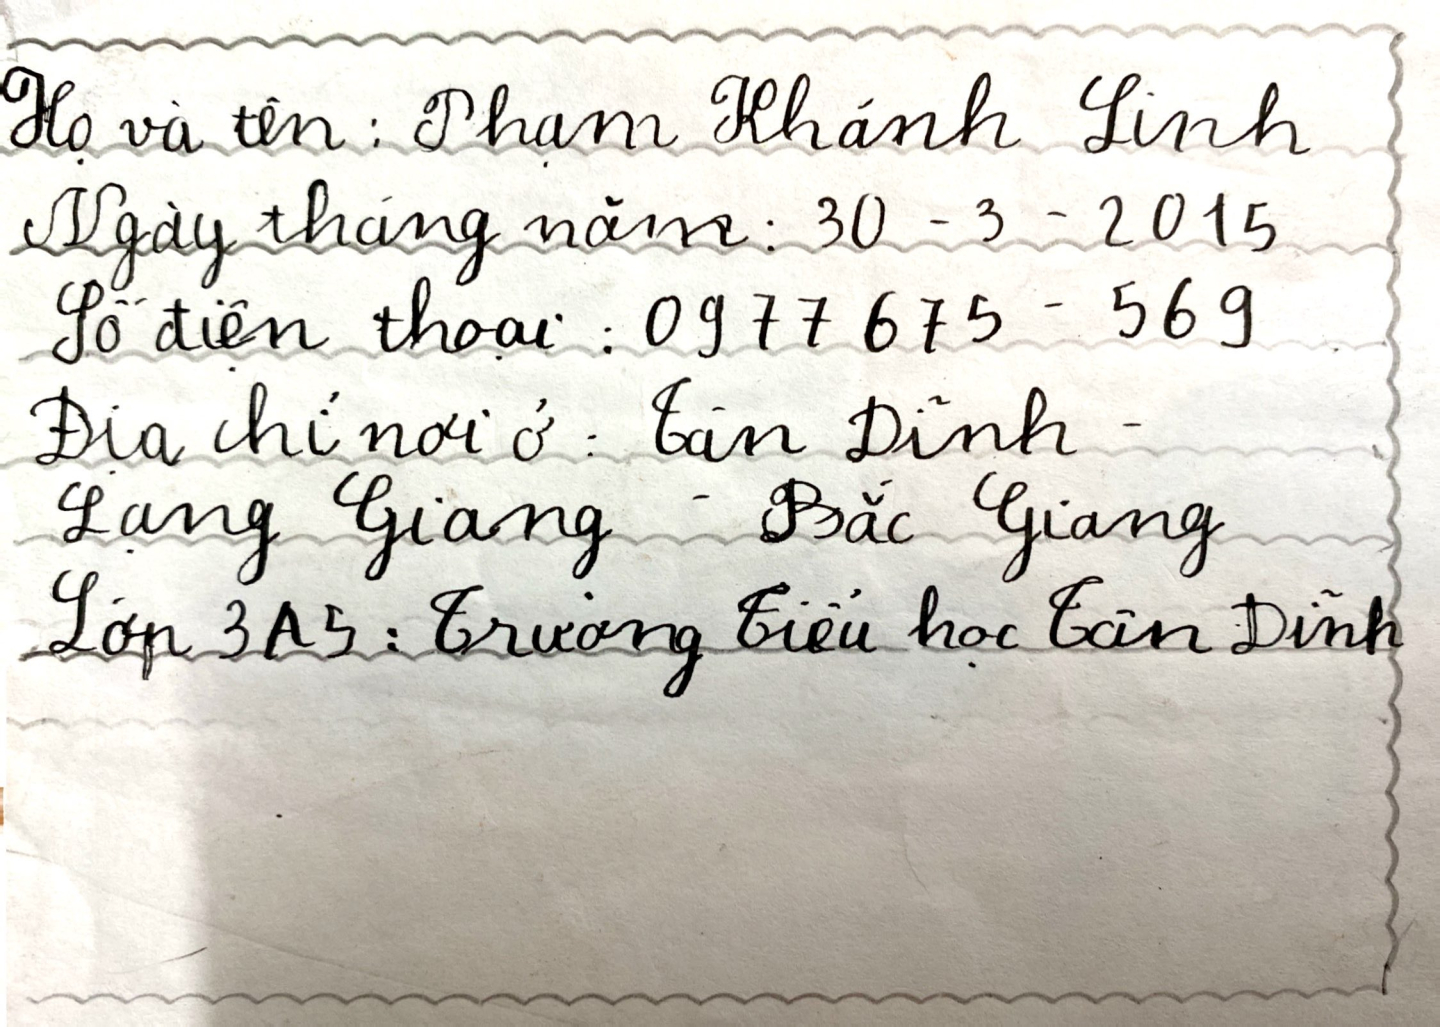 Họ và tên: Phạm Khánh Linh
Ngày tháng năm: 30 - 3 - 2015
Số điện thoại: 0977675 - 569
Địa chỉ nơi ở: Tân Dĩnh -
Lạng Giang - Bắc Giang
Lớp 3A5: Trường Tiểu học Tân Dĩnh